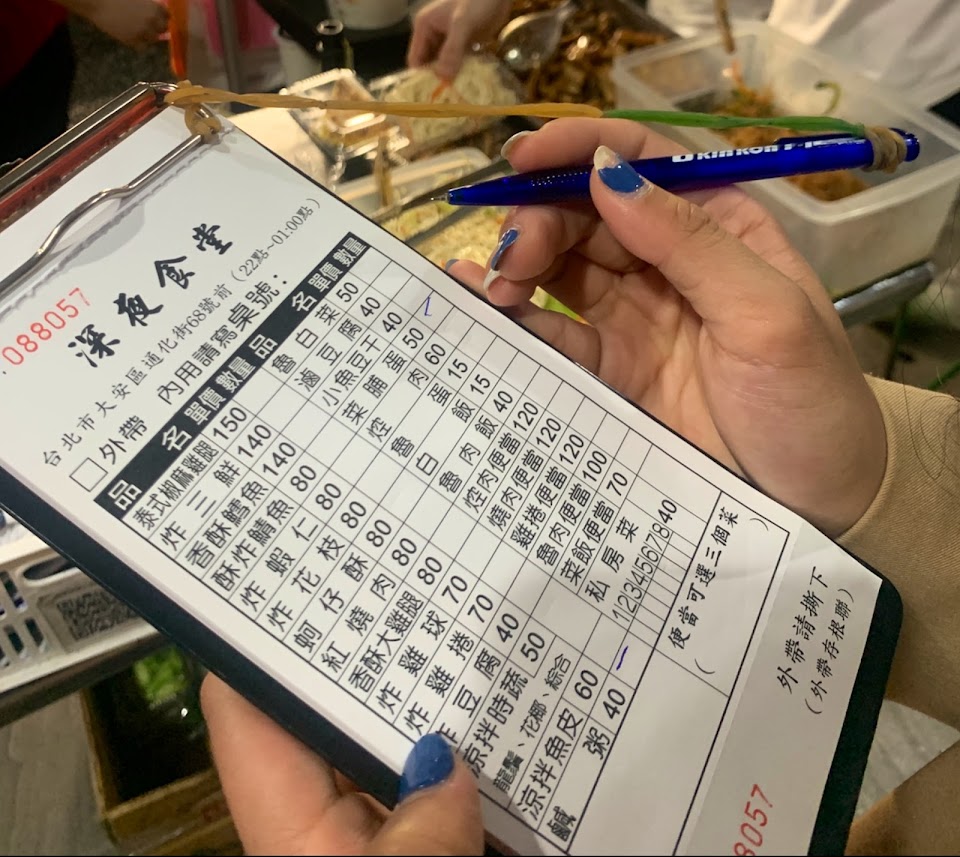 088057
深夜食堂
台北市大安區通化街68號前(22點~01:00點)
□外帶 內用請寫桌號:
品名 單價 數量 品名 單價 數量
泰式椒麻雞腿 150 魯白菜 50
炸三鮮 140 滷豆腐 40
香酥鱈魚 140 小魚豆干 40
酥炸鯖魚 80 菜脯蛋 50
炸蝦仁 80 焢肉 60
炸花枝 80 魯蛋 15
蚵仔酥 80 白飯 15
紅燒肉 80 魯肉飯 40
香酥大雞腿 80 焢肉便當 120
炸雞球 70 燒肉便當 120
炸雞捲 70 雞捲便當 120
炸豆腐 40 魯肉便當 100
涼拌時蔬 50 菜飯便當 70
龍鬚、花椰、綜合 私房菜
涼拌魚皮 60 1/2/3/4/5/6/7/8/ 40
鹹粥 40
便當可選三個菜
( )
外帶請撕下
(外帶存根聯)
8057